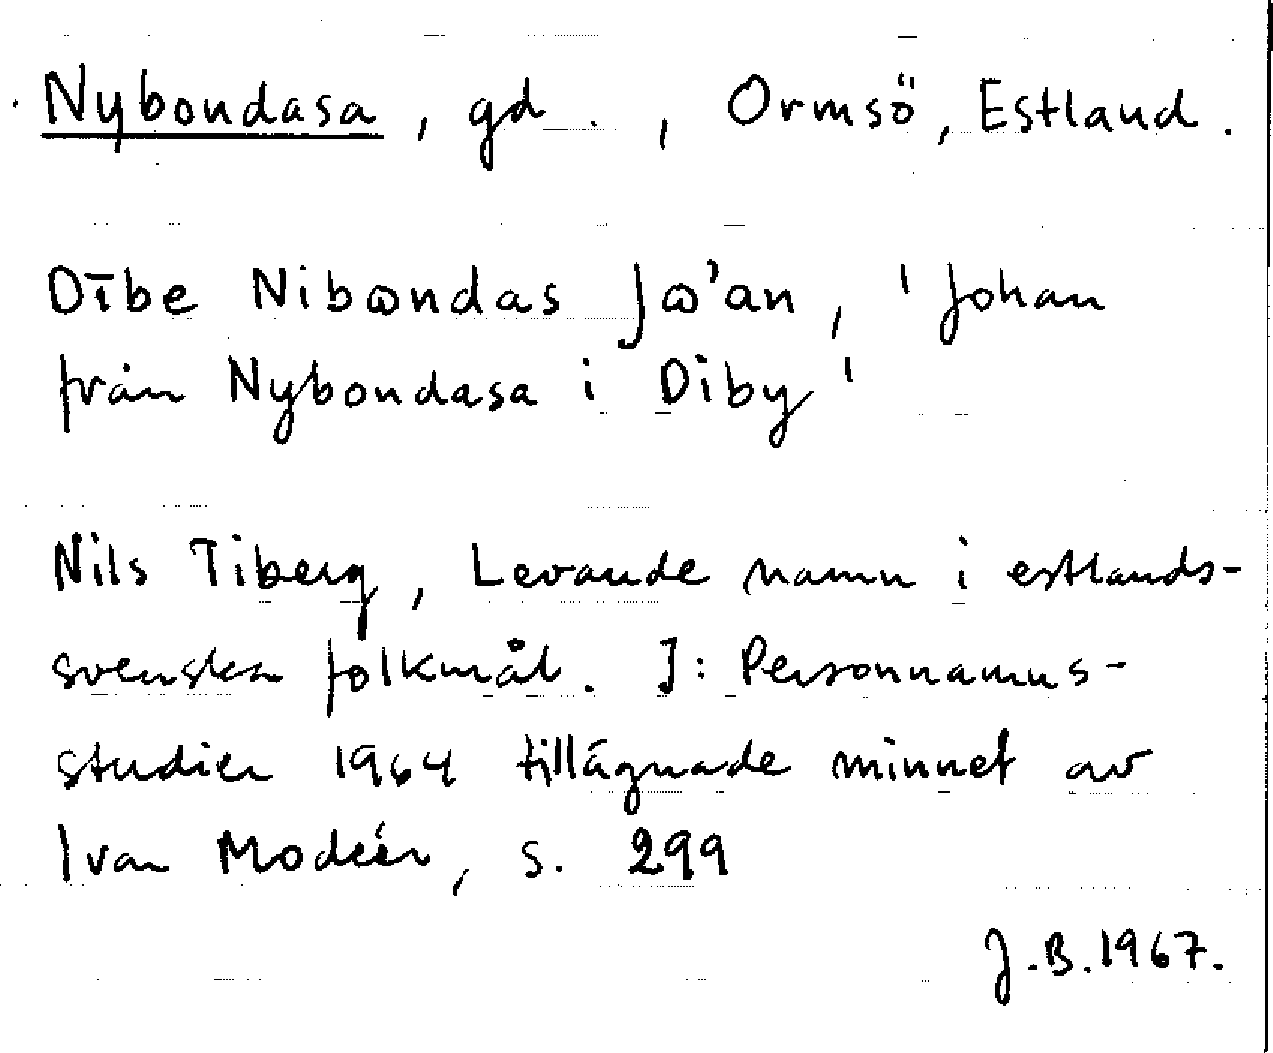 Nybondasa, gd., Ormsö, Estland.
Dībe Nibωndas Jω'an, 'Johan
från Nybondasa i Diby'
Nils Tiberg, Levande namn i estlands-
svenska folkmål. I: Personnamns-
studier 1964 tillägnade minnet av
Ivar Modéer, s. 299
J.B.1967.